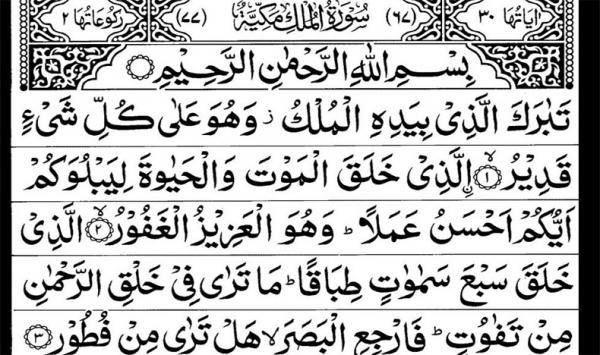 اٰيَاتُهَا ٣٠ (٦٧) سُوْرَةُ الْمُلْكِ مَكِّيَّةٌ (٧٧) رُكُوْعَاتُهَا ٢
بِسْمِ اللّٰهِ الرَّحْمٰنِ الرَّحِيْمِ
تَبٰرَكَ الَّذِيْ بِيَدِهِ الْمُلْكُ ز وَهُوَ عَلٰى كُلِّ شَيْءٍ
قَدِيْرُ ۙ﴿١﴾ اِۨلَّذِيْ خَلَقَ الْمَوْتَ وَالْحَيٰوةَ لِيَبْلُوَكُمْ
اَيُّكُمْ اَحْسَنُ عَمَلًا ؕ وَهُوَ الْعَزِيْزُ الْغَفُوْرُ ۙ﴿٢﴾ الَّذِيْ
خَلَقَ سَبْعَ سَمٰوٰتٍ طِبَاقًا ؕ مَا تَرٰى فِيْ خَلْقِ الرَّحْمٰنِ
مِنْ تَفٰوُتٍ ؕ فَارْجِعِ الْبَصَرَ ۙ هَلْ تَرٰى مِنْ فُطُوْرٍ ﴿٣﴾